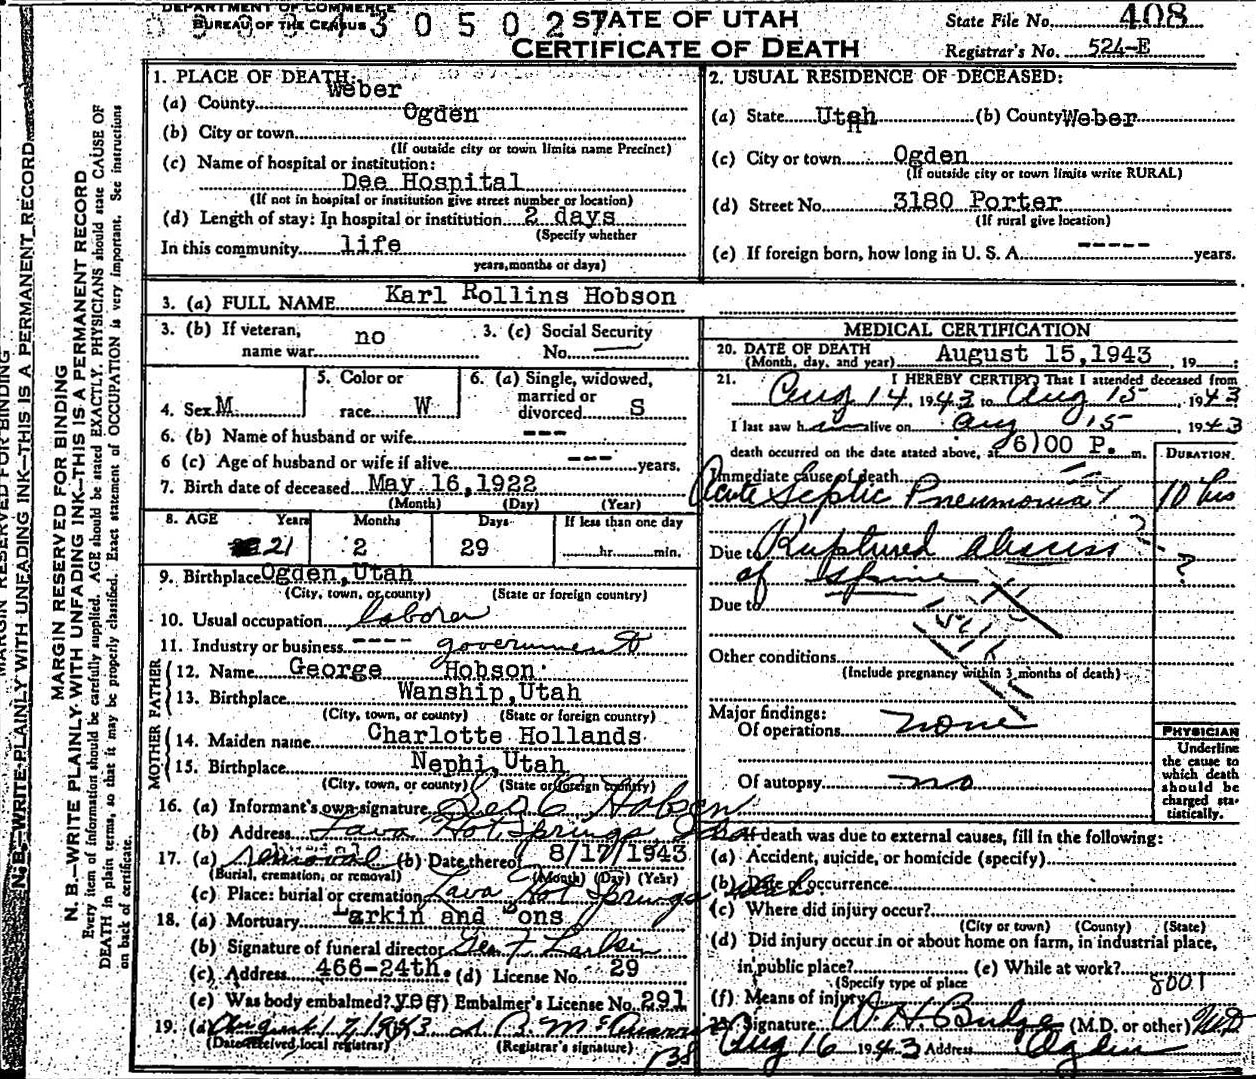 DEPARTMENT OF COMMERCE
BUREAU OF THE CENSUS
3 0 5 0 2 7
STATE OF UTAH
CERTIFICATE OF DEATH
State File No. 408
Registrar's No. 524-E
MARGIN RESERVED FOR BINDING
N. B.—WRITE PLAINLY WITH UNFADING INK—THIS IS A PERMANENT RECORD
MARGIN RESERVED FOR BINDING
N. B.—WRITE PLAINLY WITH UNFADING INK—THIS IS A PERMANENT RECORD
Every item of information should be carefully supplied. AGE should be stated EXACTLY. PHYSICIANS should state CAUSE OF
DEATH in plain terms, so that it may be properly classified. Exact statement of OCCUPATION is very important. See instructions
on back of certificate.
1. PLACE OF DEATH:
(a) County Weber
(b) City or town Ogden
(If outside city or town limits name Precinct)
(c) Name of hospital or institution:
Dee Hospital
(If not in hospital or institution give street number or location)
(d) Length of stay: In hospital or institution 2 days
(Specify whether
In this community life
years, months or days)
2. USUAL RESIDENCE OF DECEASED:
(a) State Utah (b) County Weber
(c) City or town Ogden
(If outside city or town limits write RURAL)
(d) Street No. 3180 Porter
(If rural give location)
(e) If foreign born, how long in U. S. A. ----- years.
3. (a) FULL NAME Karl Rollins Hobson
3. (b) If veteran, name war no
3. (c) Social Security No. —
4. Sex M
5. Color or race W
6. (a) Single, widowed, married or divorced S
6. (b) Name of husband or wife ---
6 (c) Age of husband or wife if alive --- years.
7. Birth date of deceased May 16, 1922
(Month) (Day) (Year)
8. AGE Years Months Days If less than one day
21 2 29 hr. min.
9. Birthplace Ogden, Utah
(City, town, or county) (State or foreign country)
10. Usual occupation laborer
11. Industry or business ---- government
FATHER
12. Name George Hobson
13. Birthplace Wanship, Utah
(City, town, or county) (State or foreign country)
MOTHER
14. Maiden name Charlotte Hollands
15. Birthplace Nephi, Utah
(City, town, or county) (State or foreign country)
16. (a) Informant's own signature Geo C Hobson
(b) Address Lava Hot Springs Ida
17. (a) removal (b) Date thereof 8/17/1943
(Burial, cremation, or removal) (Month) (Day) (Year)
(c) Place: burial or cremation Lava Hot Springs
18. (a) Mortuary Larkin and Sons
(b) Signature of funeral director
(c) Address 466-24th. (d) License No. 29
(e) Was body embalmed? yes (f) Embalmer's License No. 291
19. (a) August 17 1943
(Date received, local registrar) (Registrar's signature)
138
MEDICAL CERTIFICATION
20. DATE OF DEATH August 15, 1943, 19
(Month, day, and year)
21. I HEREBY CERTIFY, That I attended deceased from
Aug 14, 1943 to Aug 15, 1943
I last saw him alive on Aug 15 1943
death occurred on the date stated above, at 6:00 P. m.
DURATION
Immediate cause of death
Acute Septic Pneumonia 10 hrs
Due to Ruptured abscess ?
of spine
Due to
Other conditions
(Include pregnancy within 3 months of death)
Major findings:
Of operations none
Of autopsy no
PHYSICIAN
Underline
the cause to
which death
should be
charged sta-
tistically.
If death was due to external causes, fill in the following:
(a) Accident, suicide, or homicide (specify)
(b) Date of occurrence
(c) Where did injury occur?
(City or town) (County) (State)
(d) Did injury occur in or about home on farm, in industrial place,
in public place? (e) While at work?
(Specify type of place
(f) Means of injury
Signature W. H. Budge (M.D. or other) M.D
Aug 16 1943 Address Ogden